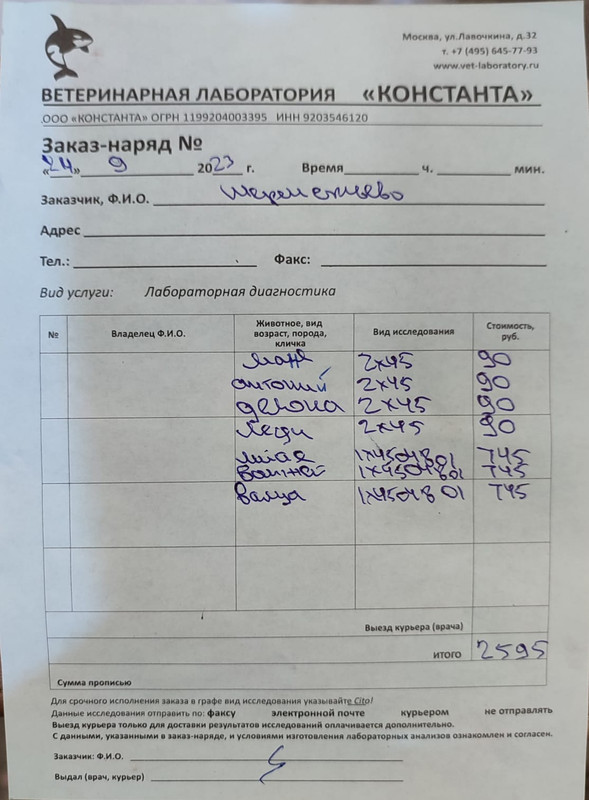 Москва, ул.Лавочкина, д.32
т. +7 (495) 645-77-93
www.vet-laboratory.ru
ВЕТЕРИНАРНАЯ ЛАБОРАТОРИЯ «КОНСТАНТА»
ООО «КОНСТАНТА» ОГРН 1199204003395 ИНН 9203546120
Заказ-наряд №
«24» 9 2023 г. Время ч. мин.
Заказчик, Ф.И.О. Шереметьево
Адрес
Тел.: Факс:
Вид услуги: Лабораторная диагностика
№ Владелец Ф.И.О. Животное, вид возраст, порода, кличка Вид исследования Стоимость, руб.
2х45 90
антоний 2х45 90
2х45 90
Леди 2х45 90
745
745
745
Выезд курьера (врача)
ИТОГО 2595
Сумма прописью
Для срочного исполнения заказа в графе вид исследования указывайте Cito!
Данные исследования отправить по: факсу электронной почте курьером не отправлять
Выезд курьера только для доставки результатов исследований оплачивается дополнительно.
С данными, указанными в заказ-наряде, и условиями изготовления лабораторных анализов ознакомлен и согласен.
Заказчик: Ф.И.О.
Выдал (врач, курьер)